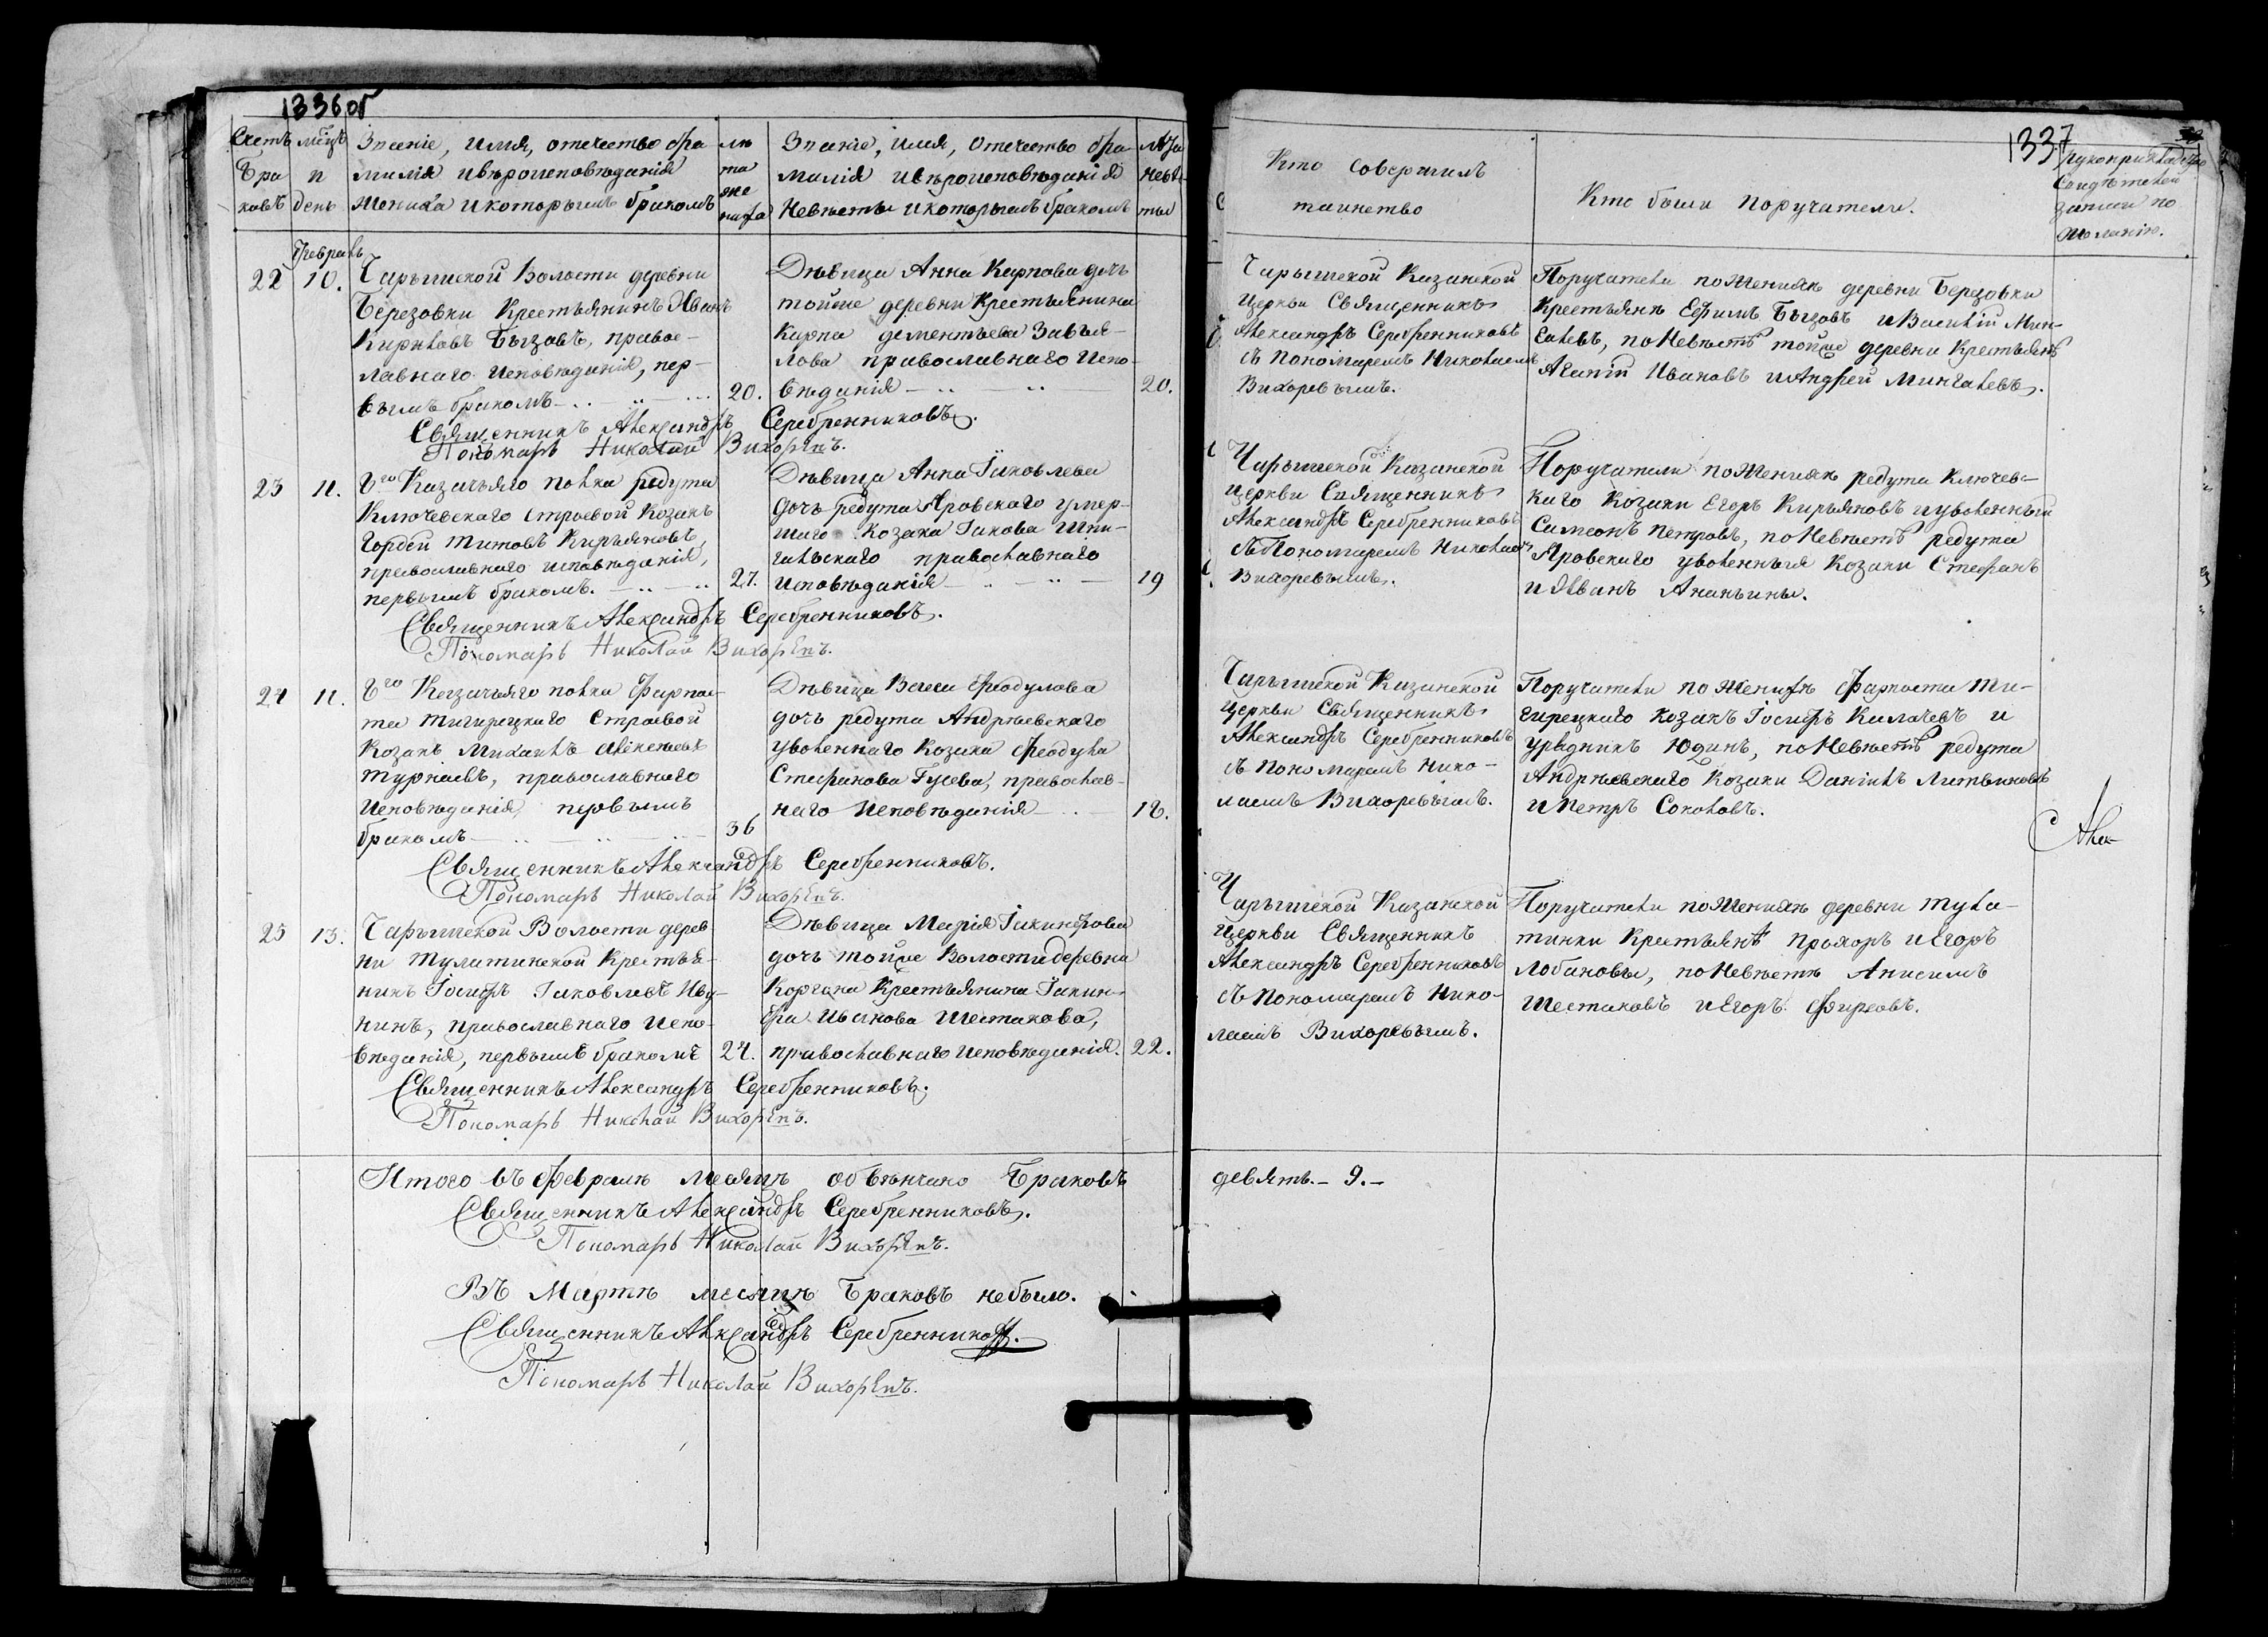 1336 об
Счетъ
бра
ковъ
мѣсцъ
и
день
Званіе, имя, отечество фа
милія ивѣроисповѣданія
жениха икоторымъ бракомъ
лѣ
та
же
ниха
Званіе, имя, отечество фа-
милія ивѣроисповѣданія
невѣсты икоторымъ бракомъ
лѣта
невѣс
ты
Февраль
22
10.
Чарышской Волости деревни
Березовки Крестьянинъ Иванъ
Кириловъ Бызовъ, правос-
лавнаго исповѣданія, пер-
вымъ бракомъ
20.
Дѣвица Анна Карпова дочь
тойже деревни Крестьянина
Карпа дементьева Завья-
лова православнаго Испо-
вѣданія
20.
Священникъ Александръ Серебренниковъ.
Пономарь Николай Вихоревъ.
23
11.
6го Казачьяго полка редута
Ключевскаго строевой Козакъ
Гордѣй Титовъ Кирьяновъ,
православнаго исповѣданія,
первымъ бракомъ.
27.
Дѣвица Анна Іаковлева
дочь редута Яровскаго умер-
шаго Козака Іакова Шпи-
гальскаго православнаго
исповѣданія
19
Священникъ Александръ Серебренниковъ.
Пономарь Николай Вихоревъ.
24
11.
6го Казачьяго полка Форпос-
та Тигирецкаго Строевой
Козакъ Михаилъ Алексеевъ
православнаго
Исповѣданія, первымъ
бракомъ
36
Дѣвица Васса Феодулова
дочь редута Андреевскаго
уволеннаго Козака Феодула
Стефанова Гусева, православ-
наго Исповѣданія
18.
Священникъ Александръ Серебренниковъ.
Пономарь Николай Вихоревъ.
25
13.
Чарышской Волости дерев
ни Тулатинской Крестья-
нинъ Іосифъ Іаковлевъ Иву-
нинъ, православнаго Испо-
вѣданія, первымъ бракомъ
24.
Дѣвица Марія Іакинфова
дочь тойже Волости деревни
Коргона Крестьянина Іакин-
фа Иванова Шестакова,
православнаго исповѣданія.
22.
Священникъ Александръ Серебренниковъ.
Пономарь Николай Вихоревъ.
Итого въ Февралѣ месяцѣ обвѣнчано браковъ
Священникъ Александръ Серебренниковъ.
Пономарь Николай Вихоревъ.
Въ Мартѣ месяцѣ браковъ небыло.
Священникъ Александръ Серебренниковъ.
Пономарь Николай Вихоревъ.
1337
Кто совершилъ
таинство
Кто были поручатели.
рукоприкладство
свидѣтелей
записи по
желанію.
Чарышской Казанской
церкви Священникъ
Александръ Серебренниковъ
съ пономаремъ Николаемъ
Вихоревымъ.
Поручатели пожениxѣ деревни Березовки
Крестьяне Ефимъ Бызовъ иВасилій Мин-
галевъ, поНевѣстѣ тойже деревни Крестьяне
Агапій Ивановъ иАндрей Мингалевъ.
Чарышской Казанской
церкви Священникъ
Александръ Серебренниковъ
съ Пономаремъ Николаемъ
Вихоревымъ.
Поручатели поженихѣ редута Ключевс-
каго Козаки Егоръ Кирьяновъ иуволенный
Симеонъ Петровъ, поНевѣстѣ редута
Яровскаго уволенныя Козаки Стефанъ
иИванъ Ананьины.
Чарышской Казанской
церкви Священникъ
Александръ Серебренниковъ
съ Пономаремъ Нико-
лаемъ Вихоревымъ.
Поручатели поженихѣ Форпоста Ти-
гирецкаго козакъ Іосифъ Калачевъ и
урядникъ Юдинъ, поНевѣстѣ редута
Андреевскаго Козаки Даніилъ Литвиновъ
иПетръ Соколовъ.
Алек-
Чарышской Казанской
Церкви Священникъ
Александръ Серебренниковъ
съ Пономаремъ Нико-
лаемъ Вихоревымъ.
Поручатели поженихѣ деревни Тула-
тинки Крестьянѣ Прохоръ иЕгоръ
Лобановы, поНевѣстѣ Анисимъ
Шестаковъ иЕгоръ Фирсовъ.
девять.- 9.-